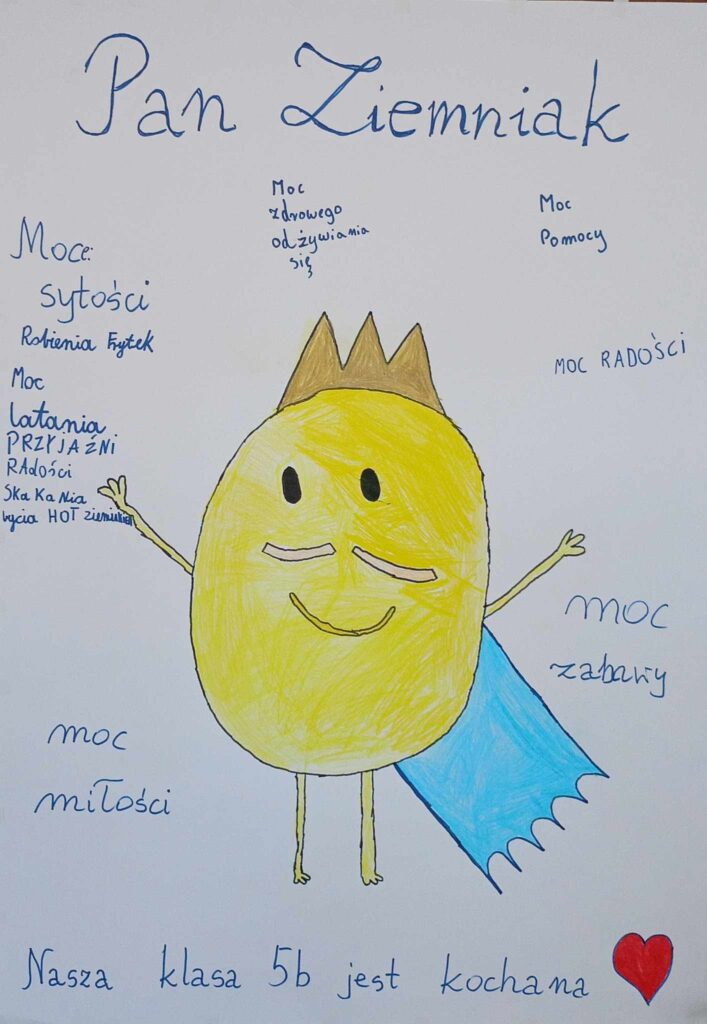 Pan Ziemniak
Moc
zdrowego
odżywiania
się
Moc
Pomocy
Moce:
sytości
Robienia Frytek
Moc
latania
PRZYJAŹNI
RAdości
SkaKaNia
bycia HOT
MOC RADOŚCI
moc
zabawy
moc
miłości
Nasza klasa 5b jest kochana